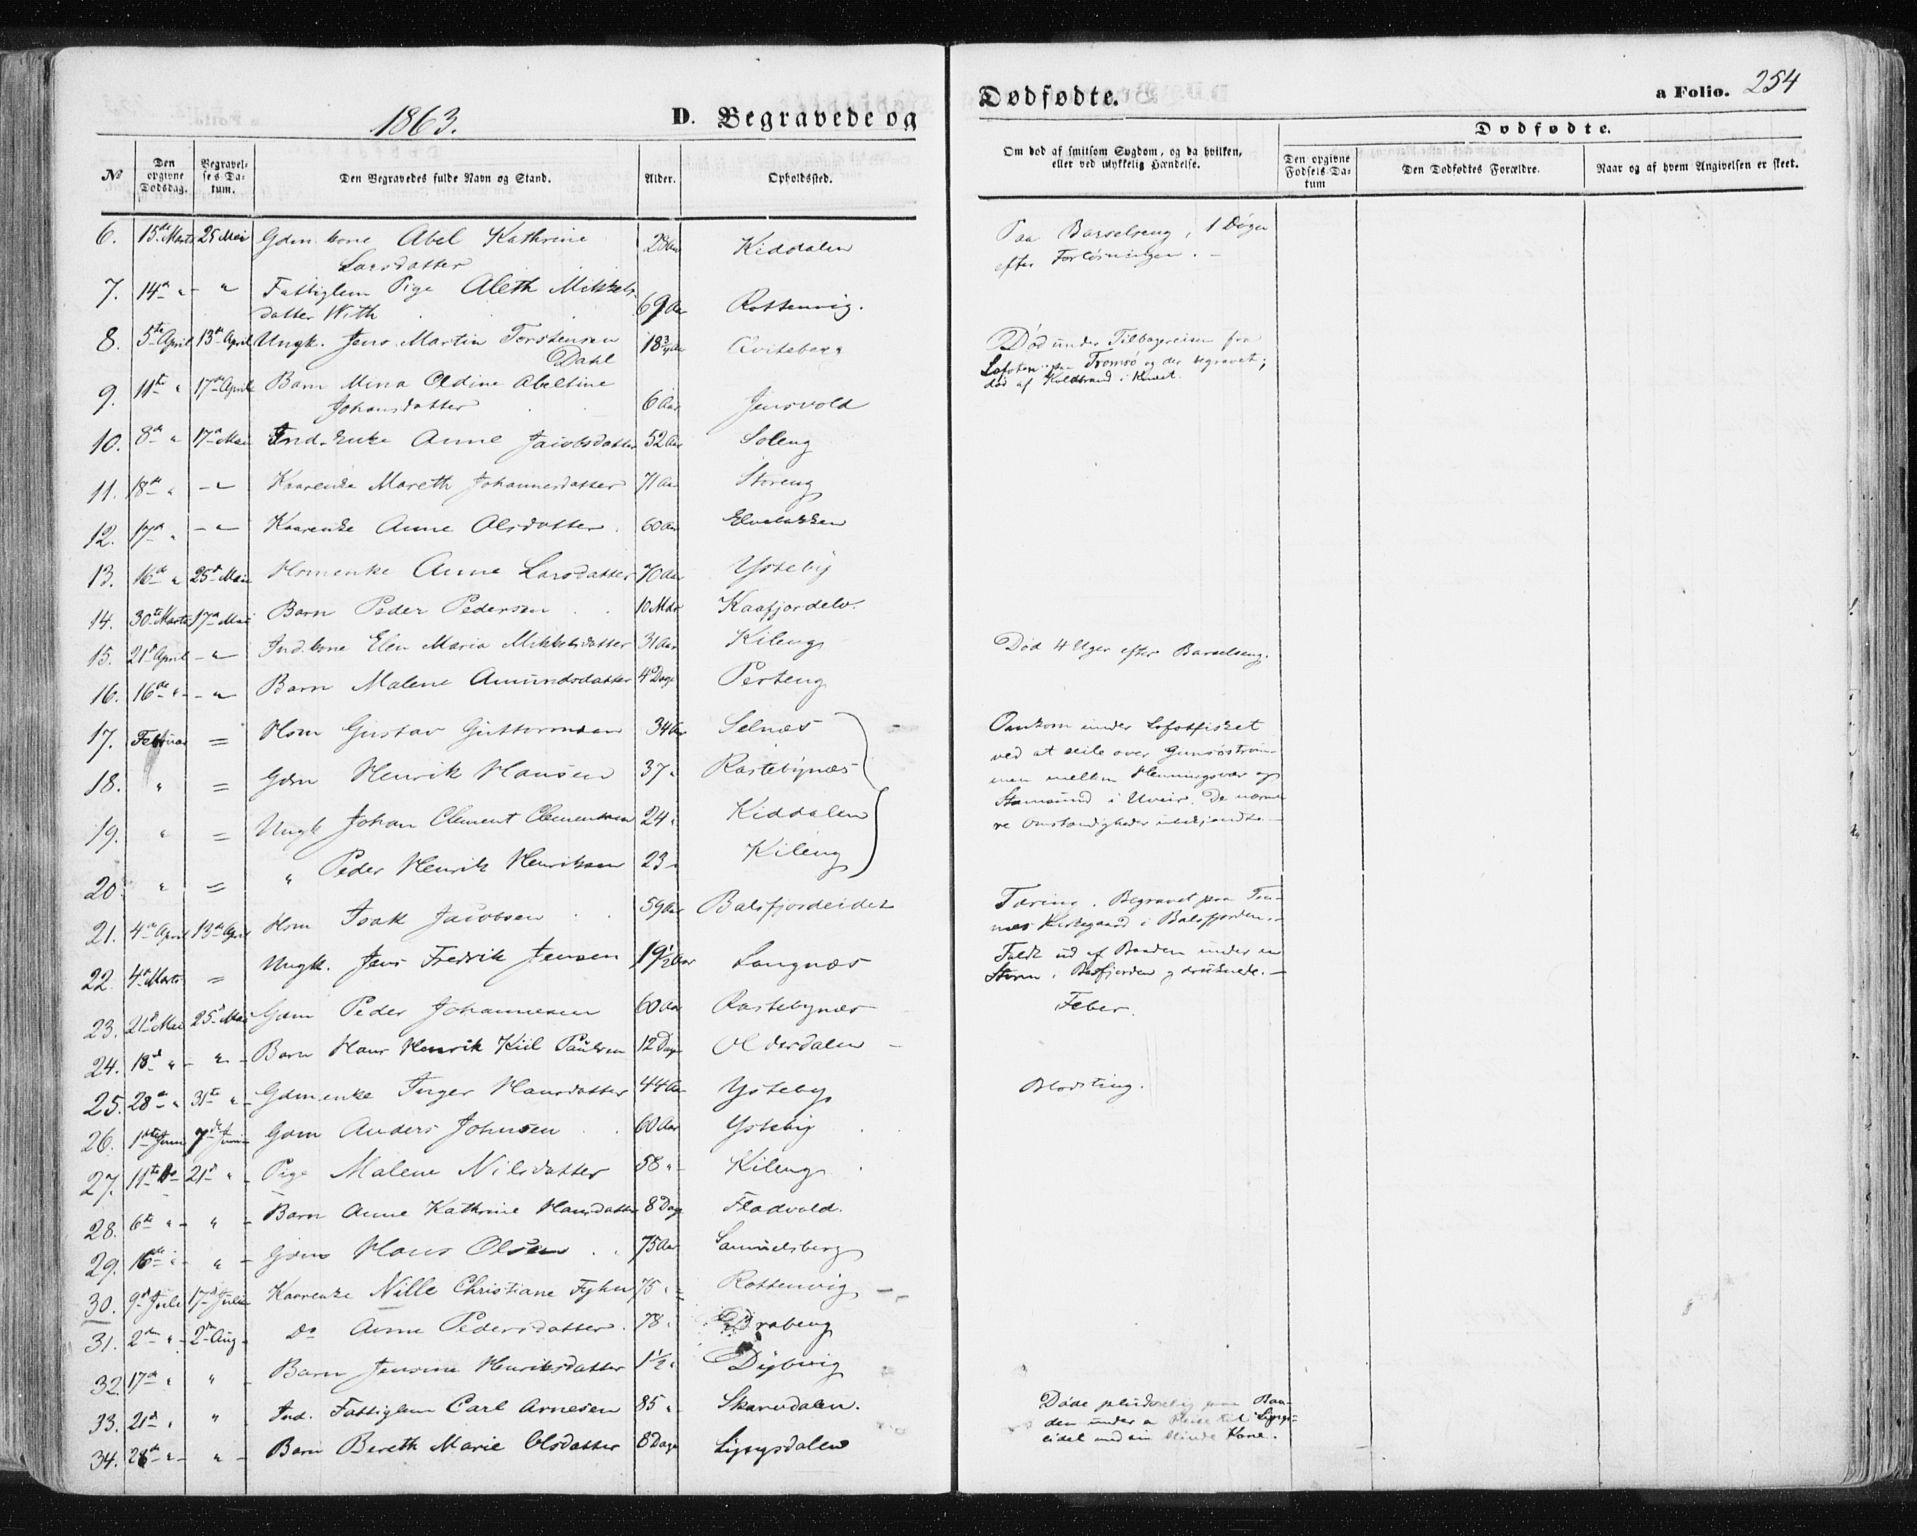 1863.
D. Begravede og
Dødfødte.
a Folio. 254
No
Den opgivne Dødsdag.
Begravelses Datum.
Den Begravedes fulde Navn og Stand.
Alder.
Opholdssted.
Om død af smitsom Sygdom, og da hvilken, eller ved ulykkelig Hændelse.
Dødfødte.
Den opgivne Fødsels Datum
Den Dødfødtes Forældre.
Naar og af hvem Angivelsen er skeet.
6. 15de Marts 25 Mai Gdm. kone Abel Kathrine Kiddalen Paa Barselseng, 1 Døgn
Larsdatter efter Forløsningen. -
7. 14de " - " Fattiglem Pige Aleth Mikkels-
datter With 69 Aar Rottenvig.
8. 5te April 13de April Ungk. Jens Martin Torstensen 18 3/4 Aar Qviteberg Død under Tilbagereisen fra
Dahl Lofoten paa Tromsø og der begravet;
død af Koldbrand i Knæet.
9. 11te " 17de April Barn Mina Oldine Abeltine
Johansdatter 6 Aar Jensvold
10. 8de " 17de Mai Ind. Enke Anne Jacobsdatter 52 Aar Soleng
11. 18de " - " Kaarenke Mareth Johannesdatter 71 Aar Storeng
12. 17de " - " Kaarenke Anne Olsdatter 60 Aar Elvebakken
13. 16de " 25de Mai Hsmenke Anne Larsdatter 70 Aar Ysteby
14. 30te Marts 17de Mai Barn Peder Pedersen 10 Mdr. Kaafjordelv.
15. 21de April - " Ind. kone Elen Maria Mikkelsdatter 31 Aar Kileng Død 4 Uger efter Barselseng.
16. 16de " - " Barn Malene Amundsdatter 4 Dage Perteng
17. Februar = Hsm Gustav Guttormsen 34 Aar Selnæs Omkom under Lofotfisket
ved at seile over Gimsøstrøm-
18. " = Gdm Henrik Hansen 37 " Rastebynæs men mellem Henningsvær og
Stamsund i Uveir. De nærme-
19. " = Ungk Johan Clement Clementsen 24 " Kiddalen re Omstændigheder ubekjendte. -
20. " = " Peder Henrik Henriksen 23 " Kileng
21. 4de April 13de April Hsm Isak Jacobsen 59 Aar Balsfjordeidet Tæring. Begravet paa Ton-
næs Kirkegaard i Balsfjorden. -
22. 4de Marts = Ungk. Jens Fredrik Jensen 19 1/2 Aar Langnæs Faldt ud af Baaden under en
Storm i Balsfjorden og druknede. -
23. 21de Mai 25de Mai Gdm Peder Johannesen 60 Aar Rastebynæs Feber.
24. 18de " - " - Barn Hans Henrik Kiil Paulsen 12 Dage Olderdalen -
25. 28de " 31te " - Gdmenke Inger Hansdatter 44 Aar Ysteby Blodsting.
26. 1ste Juni 7de Juni Gdm Anders Johnsen 60 Aar Ysteby
27. 11te 21de " - Pige Malene Nilsdatter 58 " Kileng
28. 6te " - " - Barn Anne Kathrine Hansdatter 8 Dage Flodvold.
29. 16de " - " - Gdm Hans Olsen 75 Aar Samuelsberg
30. 9de Juli 17de Juli Kaarenke Nille Christiane Fyhn 75 " Rottenvig -
31. 2den " - 2den Aug - Do Anne Pedersdatter 78 " Drabeng
32. 17de " " - Barn Jensine Henriksdatter 1 1/2 " Dybvig
33. 21de " " - Ind. Fattiglem Carl Arnesen 85 " Skarvdalen. Døde pludselig paa Baa-
den under en Reise til Lyngs-
eidet med sin blinde Kone.
34. 28de " - " - Barn Bereth Marie Olsdatter 8 Dage Lyngsdalen